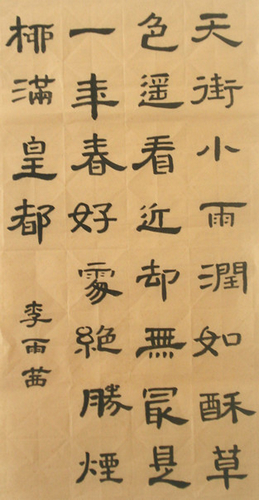 天街小雨潤如酥草
色遥看近却無冣是
一年春好處絶勝煙
柳滿皇都
李雨茜